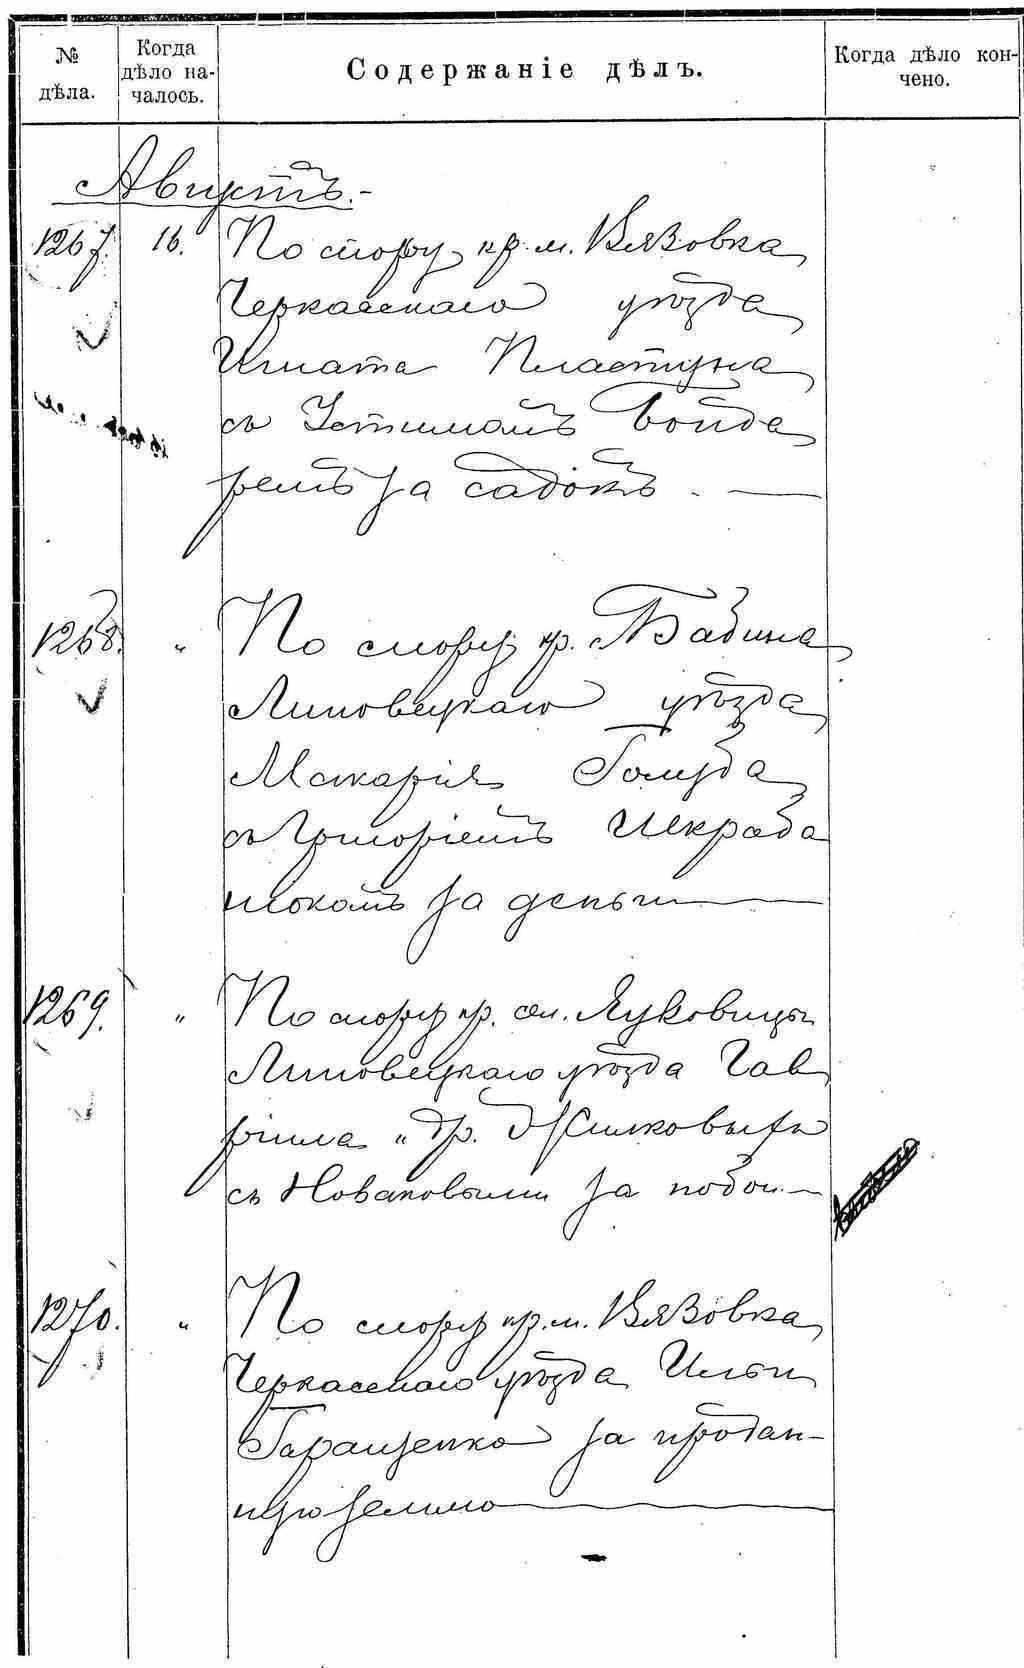 № дѣла. Когда дѣло на-чалось. Содержаніе дѣлъ. Когда дѣло кон-чено.
Августъ.
1267. 16. По спору кр. м. Вязовка
Черкасскаго уѣзда
Игната Пластуна
съ Устимомъ Бонда
ремъ за садокъ.
1268. " По спору кр. Бабина
Липовецкаго уѣзда
Макарія Голуба
съ Григоріемъ Шкраба
нюкомъ за деньги
1269. " По спору кр. сел. Яуковицы
Липовецкаго уѣзда Гав
ріила и др. Жилковыхъ
съ Новаковыми за побои.
1270. " По спору кр. м. Вязовка
Черкасскаго уѣзда Ильи
Геращенко за продан-
ную землю